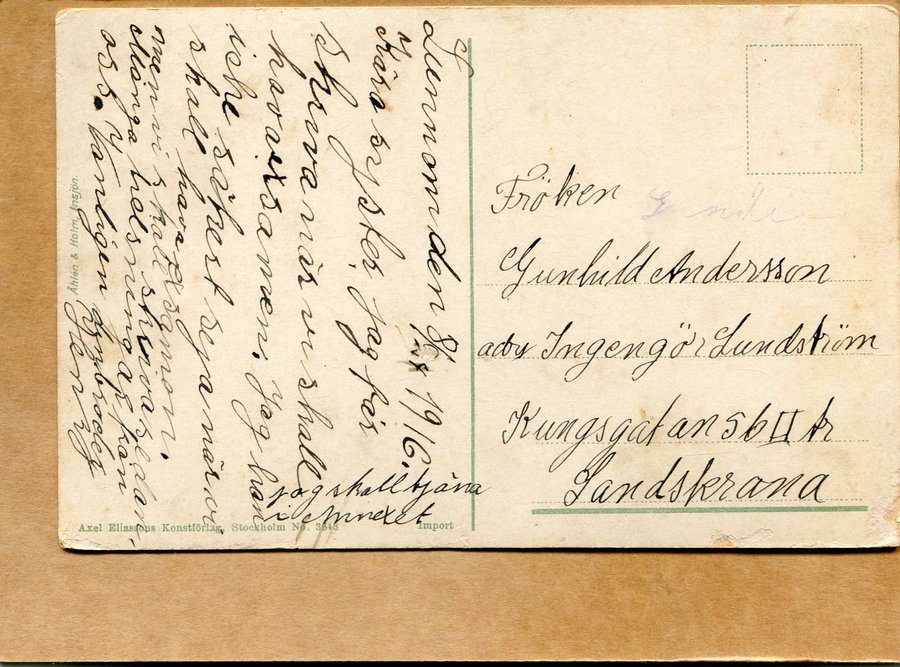 Lunnom den 8/x 1916.
Kära syster jag får
skriva när vi skall
hava exsamen. Jag kan
icke säkert seja när vi
skall hava exsamen,
men vi skall skriva sedan.
Många helsningar från
oss. Vänligen
jag skall tjäna
i Annexet
Fröken
Gunhild Andersson
adr Ingengör Lundström
Kungsgatan 56 II tr
Landskrona
Åhlén & Holm, Insjön.
Axel Eliassons Konstförlag, Stockholm No. 3648
Import